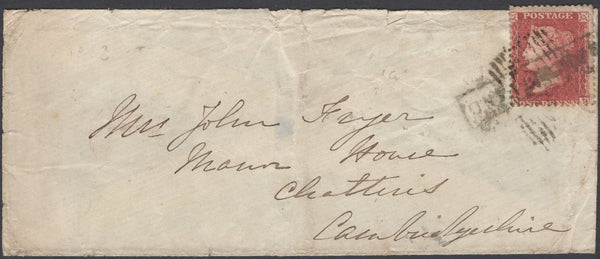 POSTAGE
Mrs John Fryer
Manor House
Chatteris
Cambridgeshire